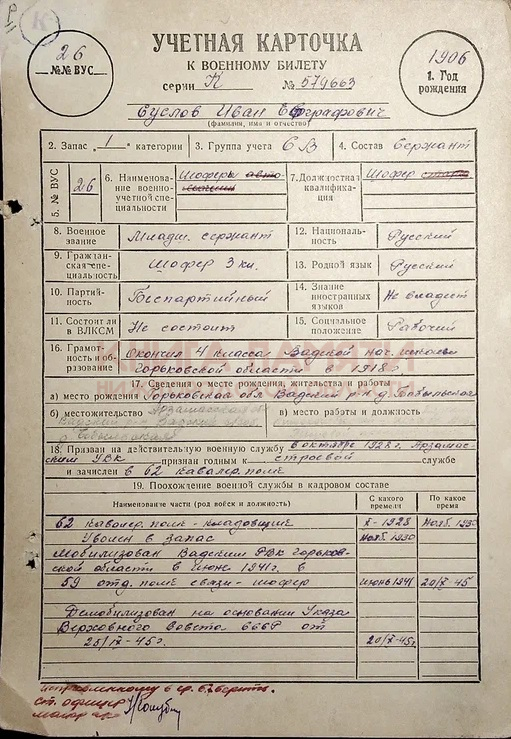 К
26
№№ ВУС
УЧЕТНАЯ КАРТОЧКА
К ВОЕННОМУ БИЛЕТУ
серии К № 579663
1906
1. Год
рождения
Суслов Иван Евграфович
(фамилия, имя и отчество)
2. Запас I категории
3. Группа учета СВ
4. Состав Сержант
5. № ВУС
26
6. Наименование военно-учетной специальности
Шоферы
7. Должностная квалификация
Шофер
8. Военное звание
Младш. сержант
12. Национальность
Русский
9. Гражданская специальность
Шофер 3 кл.
13. Родной язык
Русский
10. Партийность
Беспартийный
14. Знание иностранных языков
Не владеет
11. Состоит ли в ВЛКСМ
Не состоит
15. Социальное положение
Рабочий
16. Грамотность и образование
Окончил 4 класса Вадской нач. школы
Горьковской области в 1918 г.
КНИГА ПАМЯТИ
17. Сведения о месте рождения, жительства и работы
а) место рождения Горьковская обл Вадский р-н д.
б) местожительство
в) место работы и должность
18. Призван на действительную военную службу в октябре 1928 г. Арзамас-
ским признан годным к строевой службе
и зачислен в 62 кавалер. полк
19. Прохождение военной службы в кадровом составе
Наименование части (род войск и должность)
С какого времени
По какое время
62 кавалер. полк - X-1928 Нояб. 1930
Уволен в запас Нояб. 1930
Мобилизован Вадским РВК Горьков-
ской области в июне 1941 г. в
59 отд. полк связи - шофер июнь 1941
Демобилизован на основании Указа
Верховного Совета СССР от
ст. офицер
майор